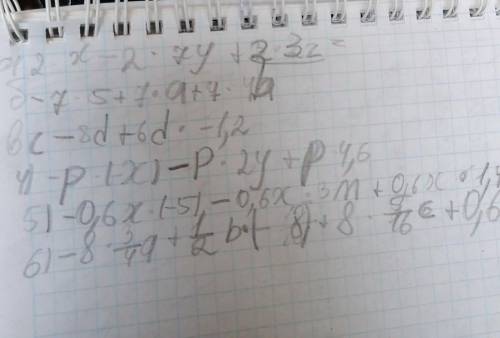 2 x - 2 · 7y + 2 · 3z =
б - 7 · 5 + 7 · a + 7 ·
вс - 8d + 6d · -1,2
4) - p · (-x) - p · 2y + p 4,6
5) - 0,6x · (-5) - 0,6x · 3m + 0,6x · 1,4
6) - 8 · 3/4 a + 1/2 b · (- 8) + 8 · /16 c + 0,6